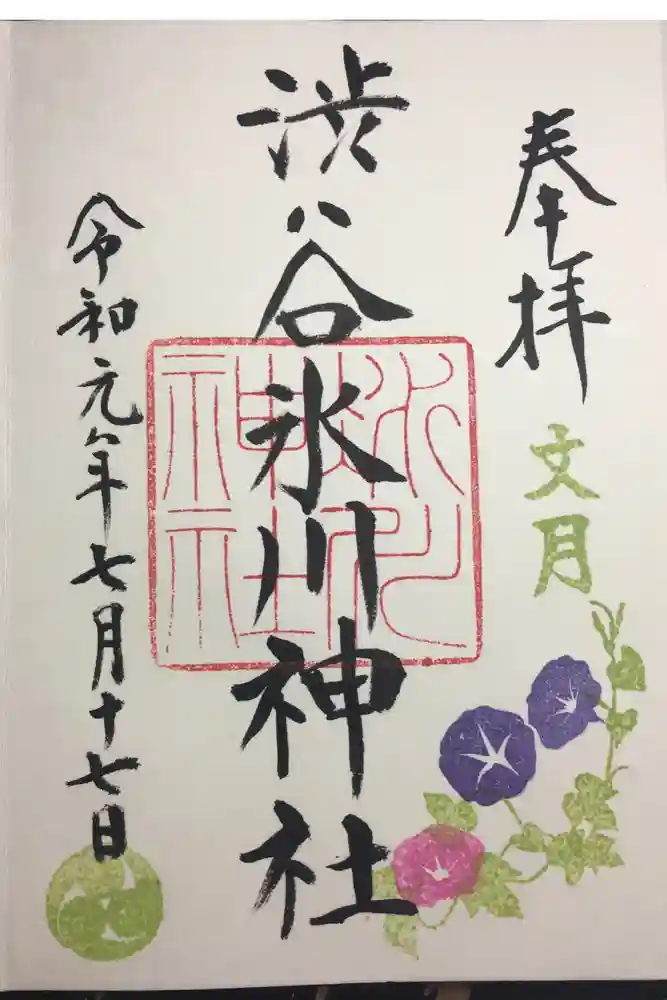 奉拝
文月
渋谷氷川神社
氷川
神社
令和元年七月十七日